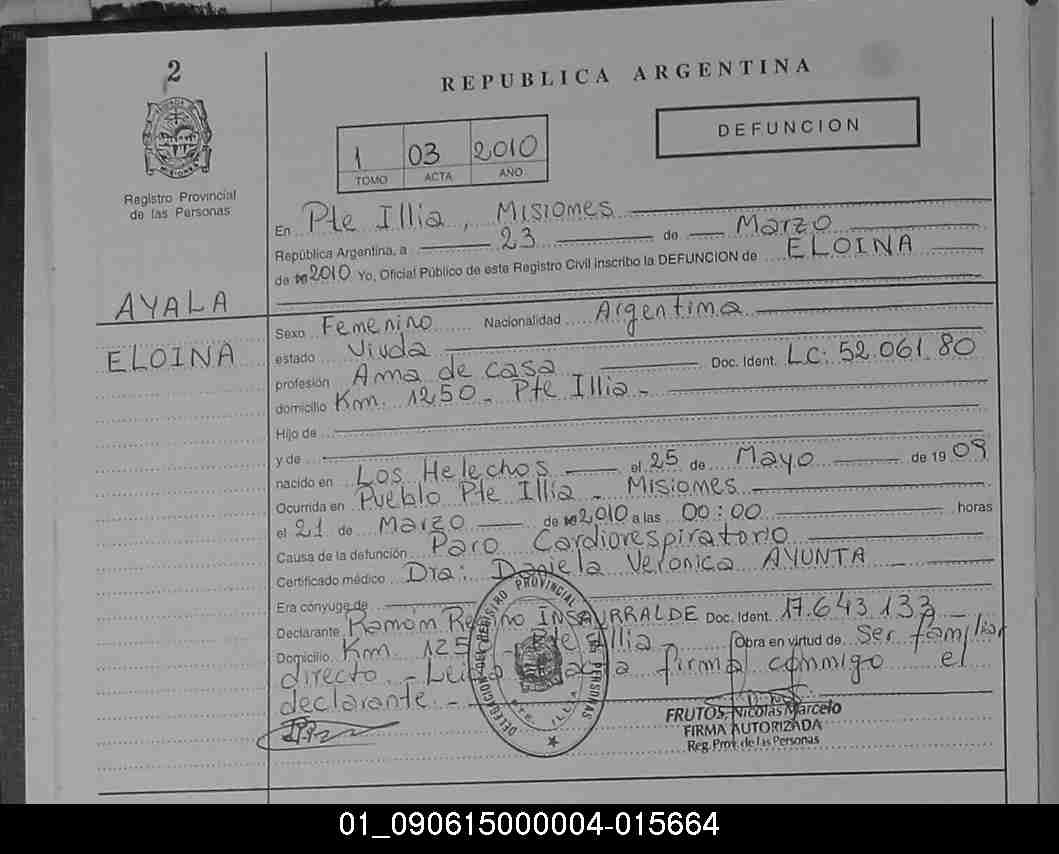 2
REPUBLICA ARGENTINA
DEFUNCION
1 03 2010
TOMO ACTA AÑO
MISIONES
Registro Provincial
de las Personas
AYALA
ELOINA
En Pte Illia, Misiones
República Argentina, a 23 de Marzo
de 2010 Yo, Oficial Público de este Registro Civil inscribo la DEFUNCION de ELOINA
Sexo Femenino Nacionalidad Argentina
estado Viuda
profesión Ama de casa Doc. Ident. LC: 52.061.80
domicilio Km. 1250 - Pte Illia -
Hijo de
y de
nacido en Los Helechos el 25 de Mayo de 19 09
Ocurrida en Pueblo Pte Illia - Misiones
el 21 de Marzo de 2,010 a las 00:00 horas
Causa de la defunción Paro Cardiorespiratorio
Certificado médico Dra: Daniela Veronica AYUNTA -
Era cónyuge de
Declarante Ramon INSAURRALDE Doc. Ident. 17.643.133 -
Domicilio Km. 125 - Pte Illia - Obra en virtud de Ser familiar
directo. - acta firma conmigo el
declarante. -
DELEGACION DEL REGISTRO PROVINCIAL DE LAS PERSONAS
PTE. ILLIA
FRUTOS, Nicolas Marcelo
FIRMA AUTORIZADA
Reg. Prov. de las Personas
01_090615000004-015664